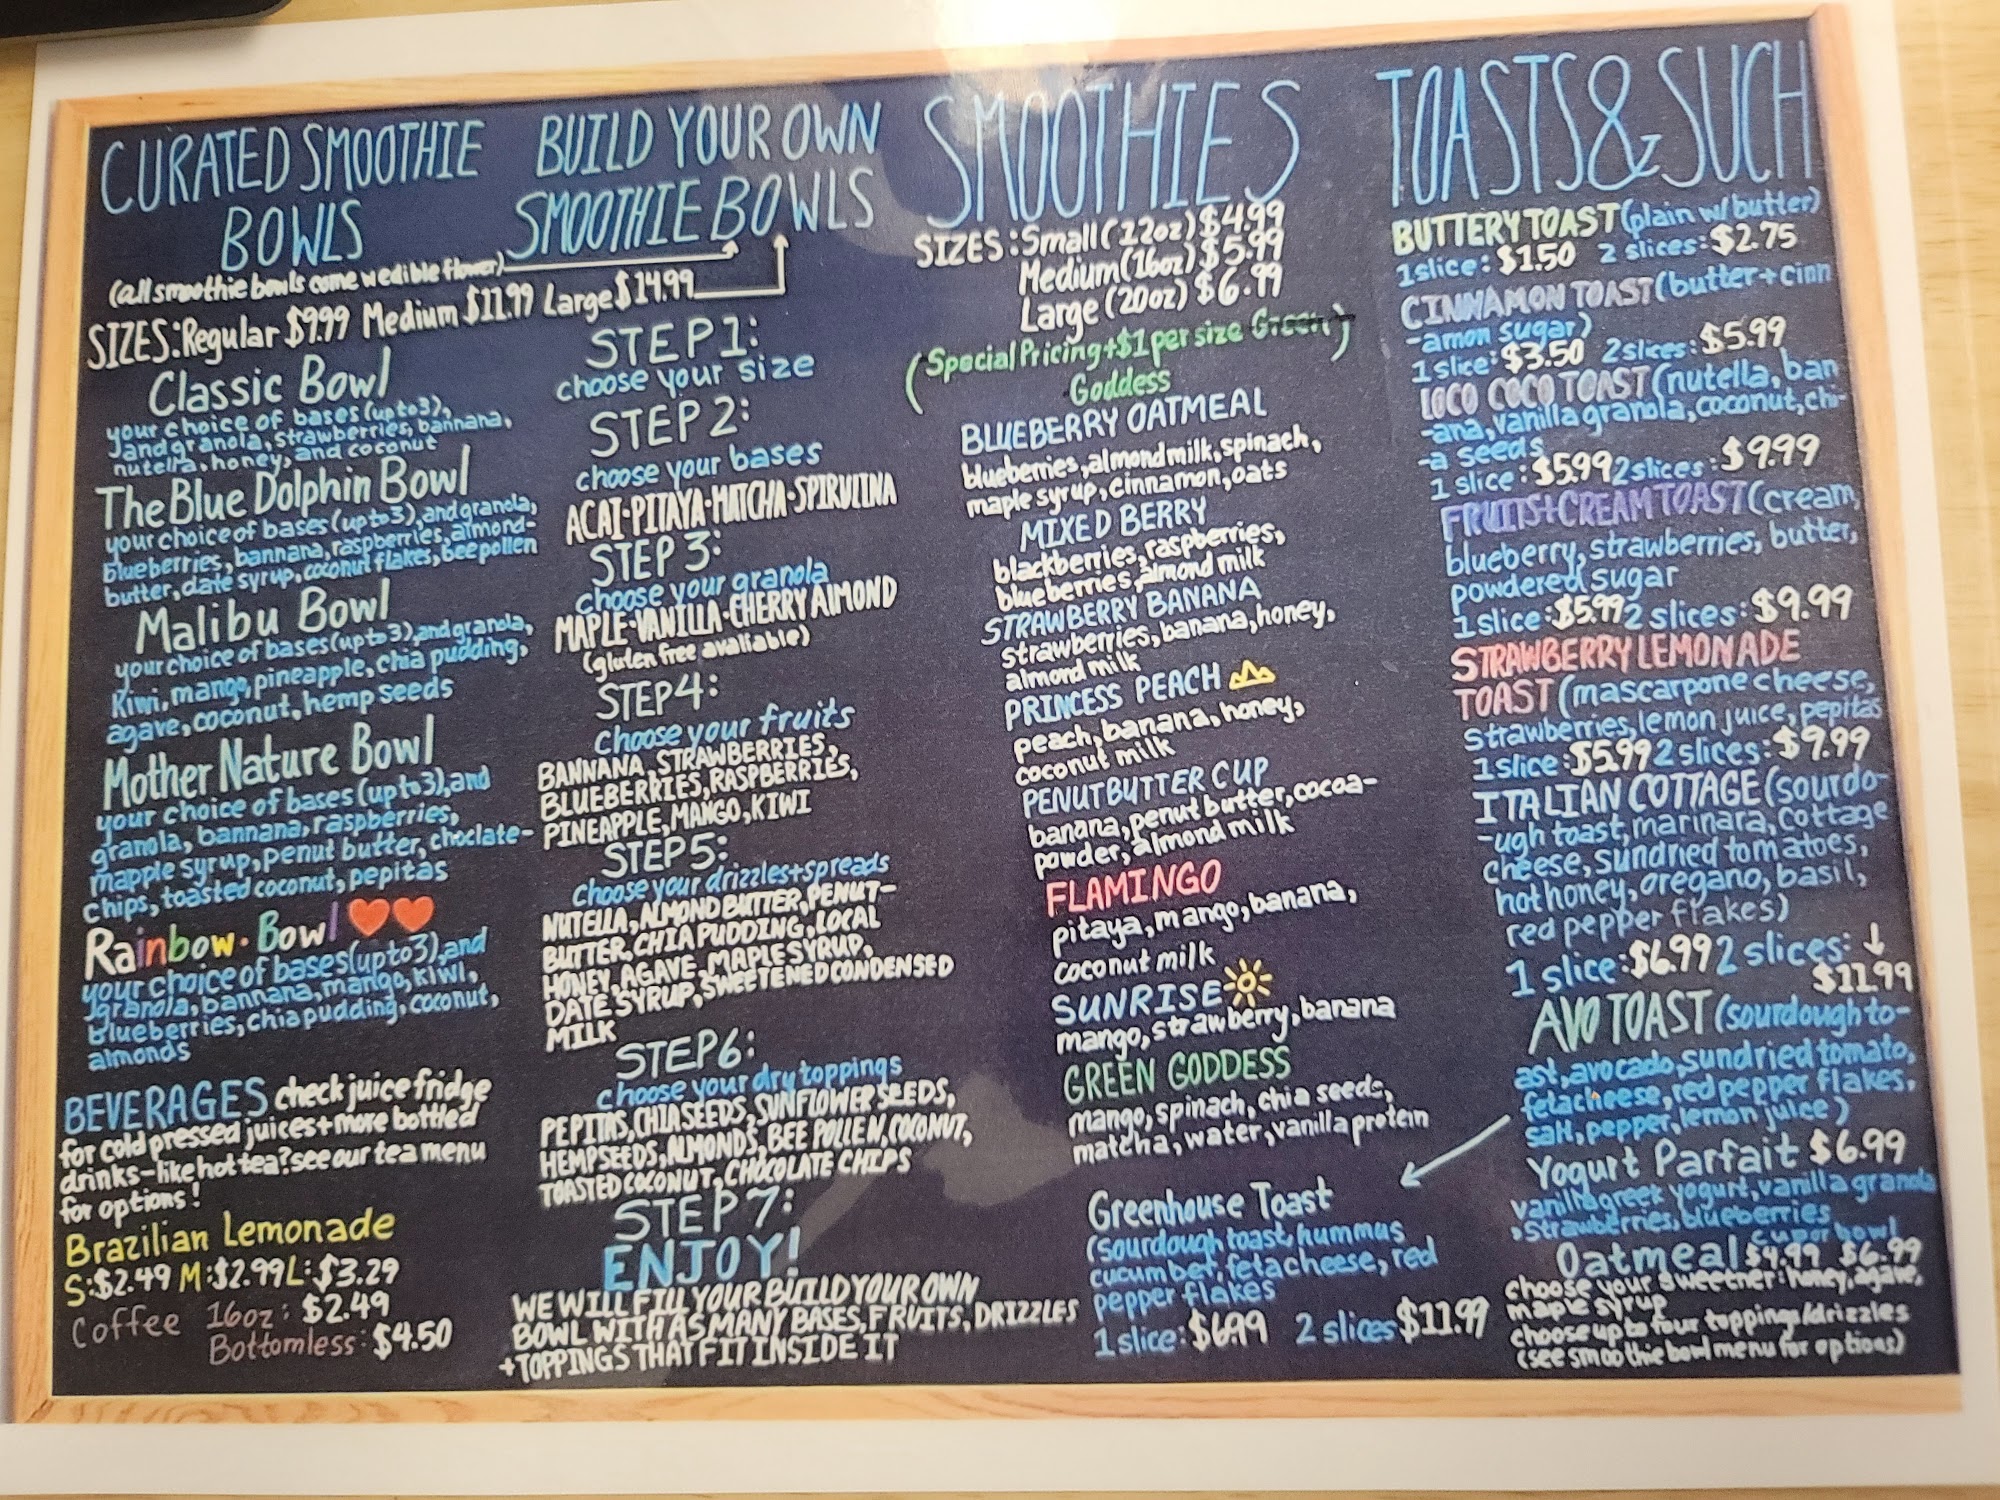 CURATED SMOOTHIE
BOWLS
(all smoothie bowls come w edible flower)
SIZES: Regular $9.99 Medium $11.99 Large $14.99
Classic Bowl
your choice of bases (up to 3),
and granola, strawberries, bannana,
nutella, honey, and coconut
The Blue Dolphin Bowl
your choice of bases (up to 3), and granola,
blueberries, bannana, raspberries, almond-
butter, date syrup, coconut flakes, bee pollen
Malibu Bowl
your choice of bases (up to 3), and granola,
Kiwi, mango, pineapple, chia pudding,
agave, coconut, hemp seeds
Mother Nature Bowl
your choice of bases (up to 3), and
granola, bannana, raspberries,
mapple syrup, penut butter, choclate-
chips, toasted coconut, pepitas
Rainbow · Bowl ❤️❤️
your choice of bases (up to 3), and
granola, bannana, mango, kiwi,
blueberries, chia pudding, coconut,
almonds
BEVERAGES check juice fridge
for cold pressed juices + more bottled
drinks - like hot tea? see our tea menu
for options!
Brazilian Lemonade
S: $2.49 M: $2.99 L: $3.29
Coffee 16oz: $2.49
Bottomless: $4.50
BUILD YOUR OWN
SMOOTHIE BOWLS
STEP 1:
choose your size
STEP 2:
choose your bases
ACAI · PITAYA · MATCHA · SPIRULINA
STEP 3:
choose your granola
MAPLE · VANILLA · CHERRY AlMOND
(gluten free avaliable)
STEP 4:
choose your fruits
BANNANA, STRAWBERRIES,
BLUEBERRIES, RASPBERRIES,
PINEAPPLE, MANGO, KIWI
STEP 5:
choose your drizzles + spreads
NUTELLA, ALMOND BUTTER, PENUT-
BUTTER, CHIA PUDDING, LOCAL
HONEY, AGAVE, MAPLE SYRUP,
DATE SYRUP, SWEETENED CONDENSED
MILK
STEP 6:
choose your dry toppings
PEPITAS, CHIA SEEDS, SUNFLOWER SEEDS,
HEMPSEEDS, ALMONDS, BEE POLLEN, COCONUT,
TOASTED COCONUT, CHOCOLATE CHIPS
STEP 7:
ENJOY!
WE WILL FILL YOUR BUILD YOUR OWN
BOWL WITH AS MANY BASES, FRUITS, DRIZZLES
+ TOPPINGS THAT FIT INSIDE IT
SMOOTHIES
SIZES: Small (12oz) $4.99
Medium (16oz) $5.99
Large (20oz) $6.99
(Special Pricing + $1 per size Green)
Goddess
BLUEBERRY OATMEAL
blueberries, almond milk, spinach,
maple syrup, cinnamon, oats
MIXED BERRY
blackberries, raspberries,
blueberries, almond milk
STRAWBERRY BANANA
strawberries, banana, honey,
almond milk
PRINCESS PEACH
peach, banana, honey,
coconut milk
PENUTBUTTER CUP
banana, penut butter, cocoa-
powder, almond milk
FLAMINGO
pitaya, mango, banana,
coconut milk
SUNRISE
mango, strawberry, banana
GREEN GODDESS
mango, spinach, chia seeds,
matcha, water, vanilla protein
Greenhouse Toast
(sourdough toast, hummus
cucumber, feta cheese, red
pepper flakes
1 slice: $6.99 2 slices $11.99
TOASTS & SUCH
BUTTERY TOAST (plain w/ butter)
1 slice: $1.50 2 slices: $2.75
CINNAMON TOAST (butter + cinn
-amon sugar)
1 slice: $3.50 2 slices: $5.99
LOCO COCO TOAST (nutella, ban
-ana, vanilla granola, coconut, chi-
-a seeds
1 slice: $5.99 2 slices: $9.99
FRUITS + CREAM TOAST (cream,
blueberry, strawberries, butter,
powdered sugar
1 slice: $5.99 2 slices: $9.99
STRAWBERRY LEMONADE
TOAST (mascarpone cheese,
strawberries, lemon juice, pepitas
1 slice: $5.99 2 slices: $9.99
ITALIAN COTTAGE (sourdo-
-ugh toast, marinara, cottage
cheese, sundried tomatoes,
hot honey, oregano, basil,
red pepper flakes)
1 slice: $6.99 2 slices: ↓
$11.99
AVO TOAST (sourdough to-
ast, avocado, sundried tomato,
feta cheese, red pepper flakes,
salt, pepper, lemon juice)
Yogurt Parfait $6.99
vanilla greek yogurt, vanilla granola
, strawberries, blueberries
cup or bowl
Oatmeal $4.99 $6.99
choose your sweetner: honey, agave,
maple syrup
choose up to four toppings/drizzles
(see smoothie bowl menu for options)